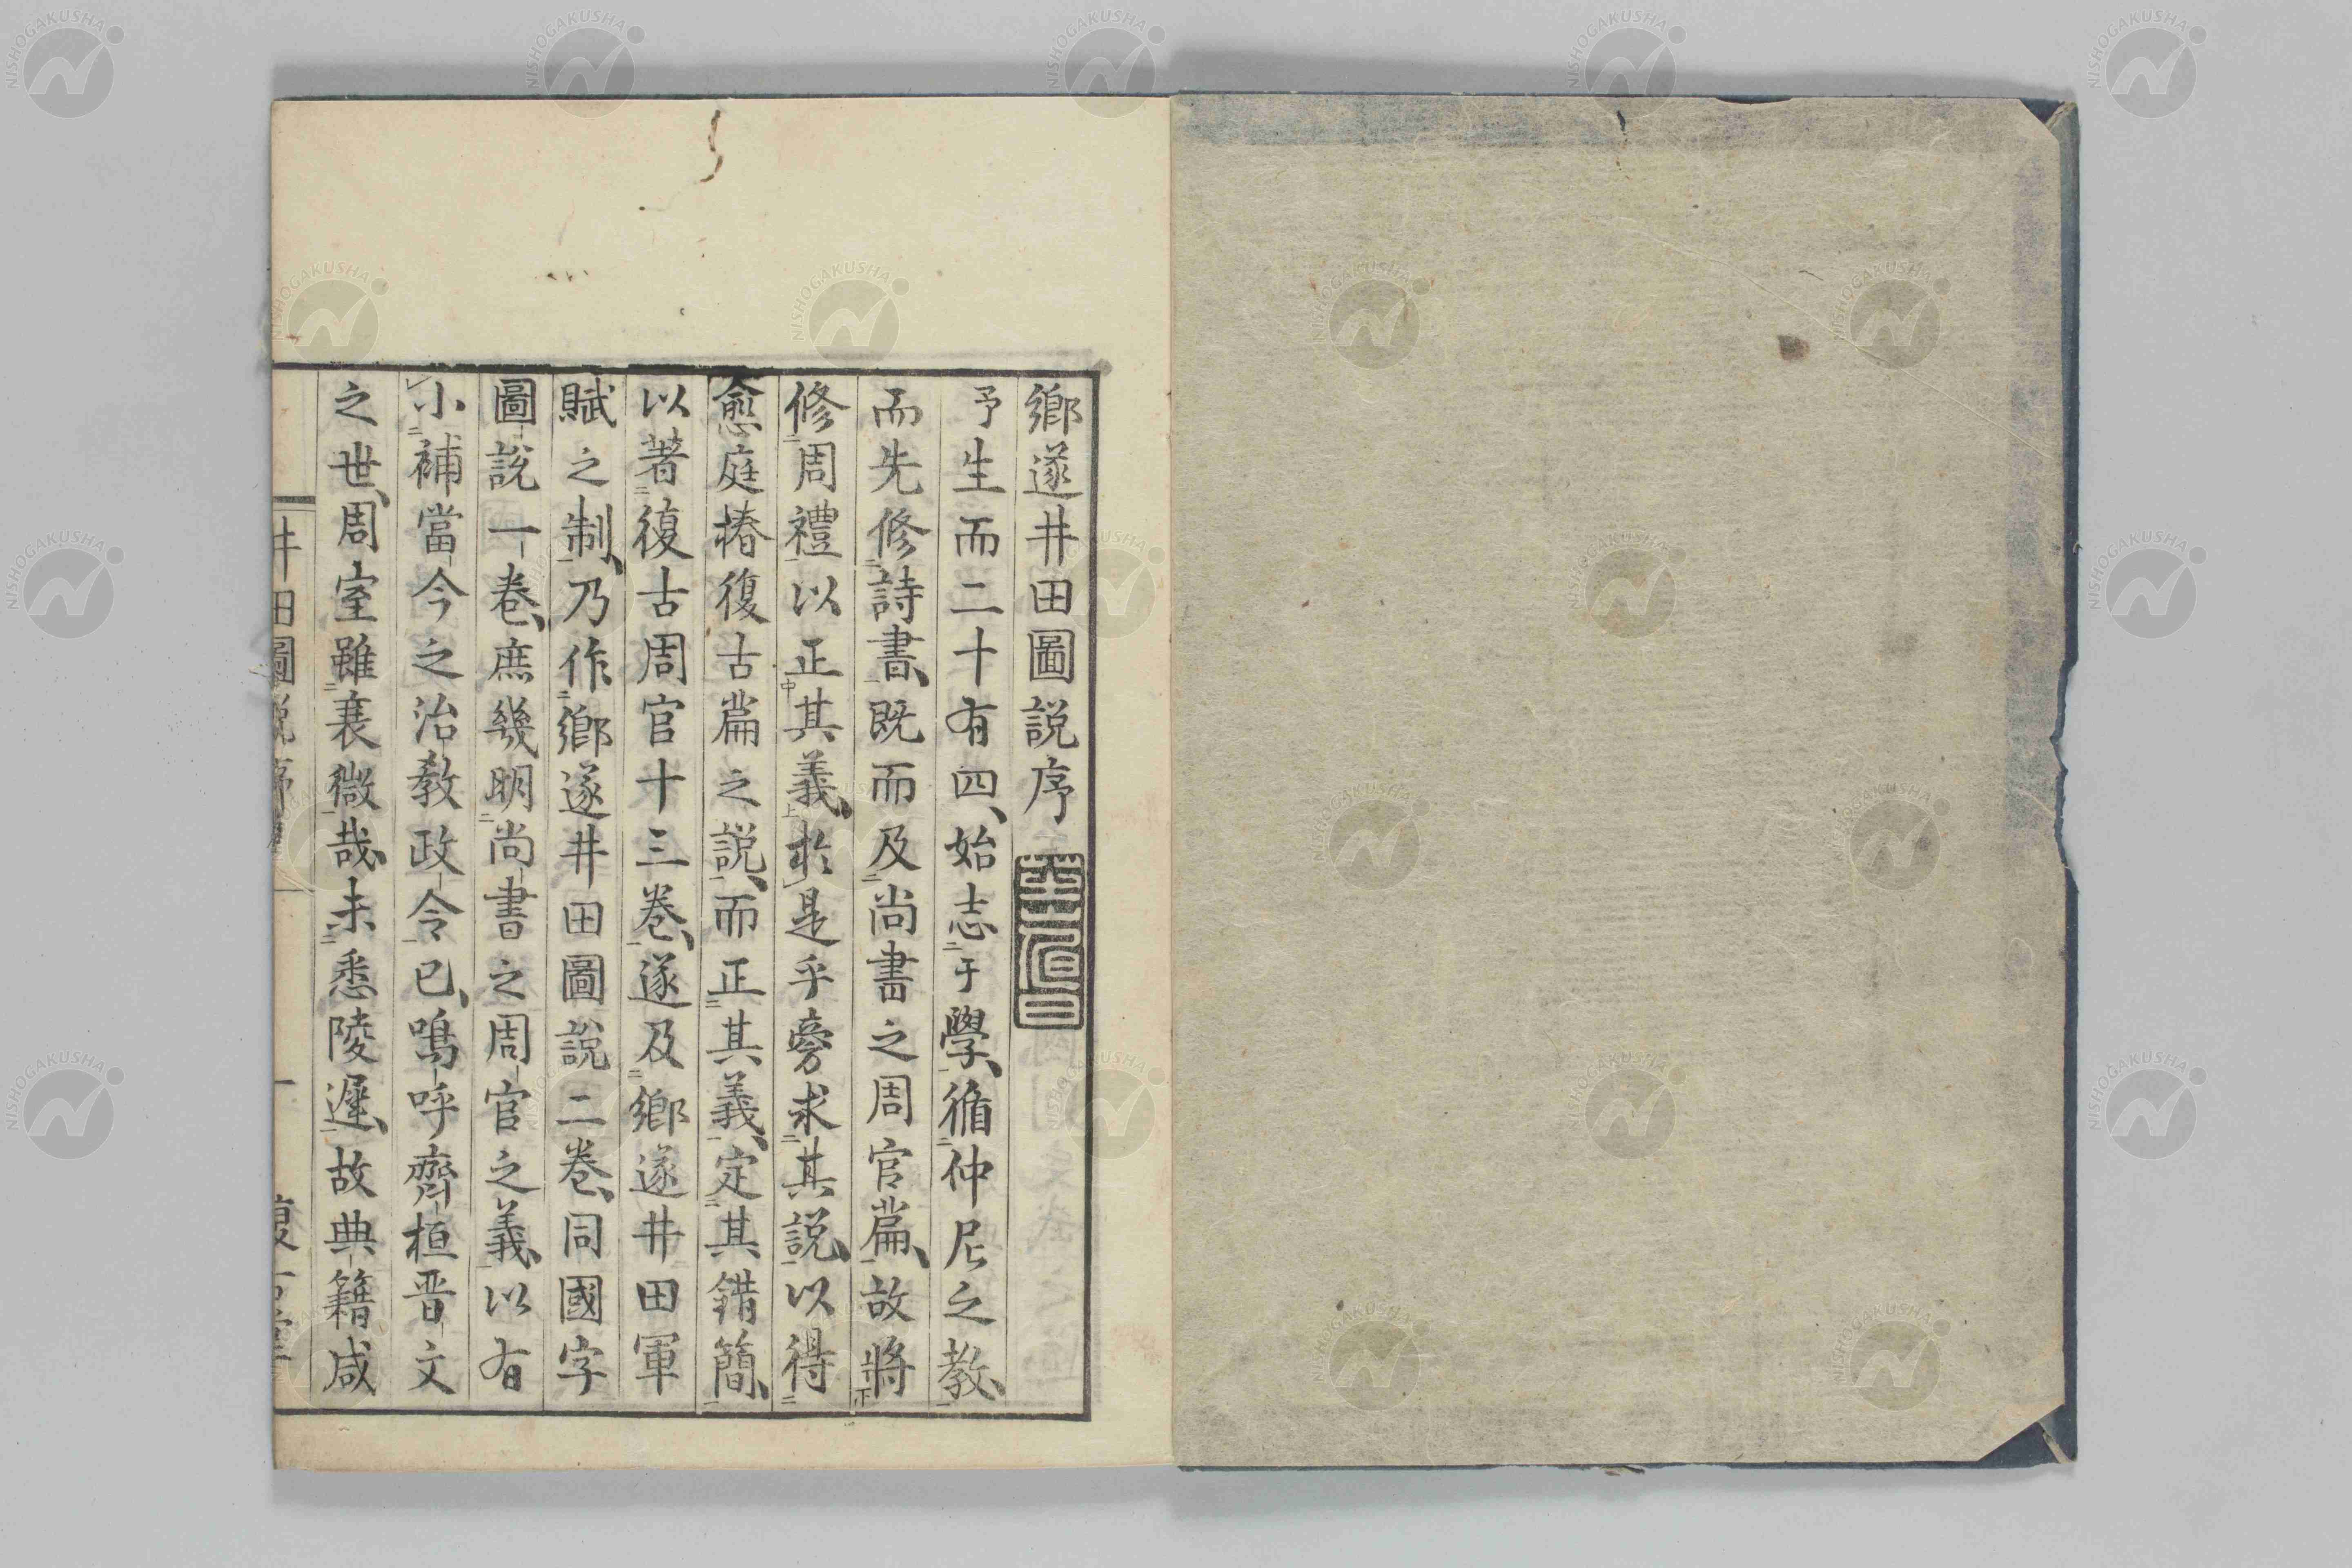 鄉遂井田圖說序
予生而二十有四、始志于學、循仲尼之教、
而先修詩書、既而及尚書之周官篇、故將
修周禮以正其義、於是乎旁求其說、以得
愈庭椿復古篇之說、而正其義、定其錯簡、
以著復古周官十三卷、遂及鄉遂井田軍
賦之制、乃作鄉遂井田圖說二卷、同國字
圖說一卷、庶幾明尚書之周官之義、以有
小補當今之治教政令已、嗚呼齊桓晉文
之世、周室雖衰微哉、未悉陵遲、故典籍咸
井田圖說序
一
NISHOGAKUSHA